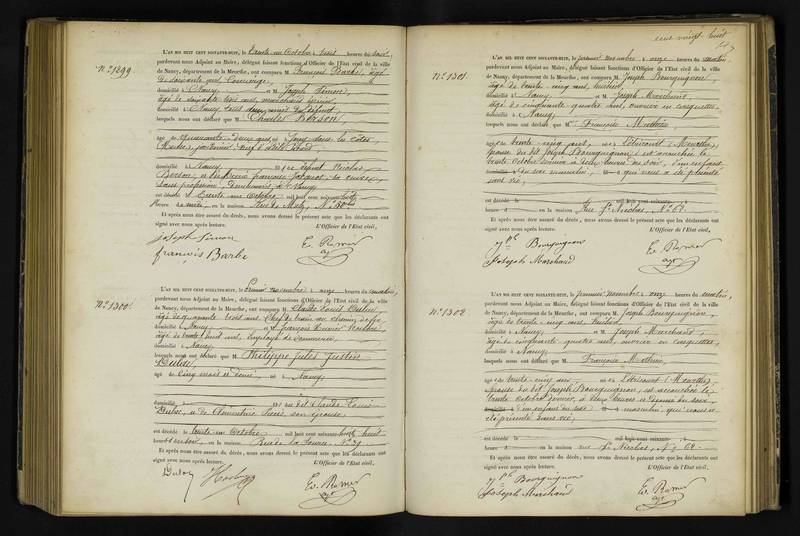 cent vingt huit
N.º 1299
L'AN MIL HUIT CENT SOIXANTE-HUIT, le trente un Octobre à trois heures du soir,
pardevant nous Adjoint au Maire, délégué faisant fonctions d'Officier de l'Etat civil de la ville
de Nancy, département de la Meurthe, ont comparu M. François Barbe, âgé
de soixante ans, Concierge,
domicilié à Nancy et M. Joseph Simon,
âgé de soixante trois ans,
domicilié à Nancy
lesquels nous ont déclaré que M. Charles Berson
âgé de quarante deux ans, né à
domicilié à Nancy fils de défunt Nicolas
Berson, et de
sans profession, à Nancy
est décédé le trente un Octobre mil huit cent soixante-huit
heure de midi, en la maison Rue de Metz, N.º
Et après nous être assuré du décès, nous avons dressé le présent acte que les déclarants ont
signé avec nous après lecture. L'Officier de l'Etat civil,
Joseph Simon
François Barbe
N.º 1300
L'AN MIL HUIT CENT SOIXANTE-HUIT, le premier novembre à onze heures du matin,
pardevant nous Adjoint au Maire, délégué faisant fonctions d'Officier de l'Etat civil de la ville
de Nancy, département de la Meurthe, ont comparu M. Claude Louis
âgé de quarante trois ans, Chef de train au chemin de fer
domicilié à Nancy et M. François
âgé de trente huit ans, Employé de Commerce
domicilié à Nancy
lesquels nous ont déclaré que M. Philippe Jules Justin
âgé de Cinq mois et demi, né à Nancy
domicilié à fils du dit Claude Louis
et de Clémentine son épouse
est décédé le trente un Octobre mil huit cent soixante-huit, huit
heures du soir, en la maison Rue de la Source, N.º 29
Et après nous être assuré du décès, nous avons dressé le présent acte que les déclarants ont
signé avec nous après lecture. L'Officier de l'Etat civil,
N.º 1301
L'AN MIL HUIT CENT SOIXANTE-HUIT, le premier novembre à onze heures du matin,
pardevant nous Adjoint au Maire, délégué faisant fonctions d'Officier de l'Etat civil de la ville
de Nancy, département de la Meurthe, ont comparu M. Joseph Bourguignon,
âgé de trente cinq ans,
domicilié à Nancy et M. Joseph Marchand,
âgé de cinquante quatre ans, ouvrier en casquettes,
domicilié à Nancy
lesquels nous ont déclaré que M. Françoise Mathieu,
âgée de trente cinq ans, née à (Meurthe)
épouse du dit Joseph Bourguignon, est accouchée le
trente Octobre dernier, à deux heures du soir, d'un enfant
du sexe masculin, qui nous a été présenté
sans vie,
est décédé le mil huit cent soixante
heure en la maison Rue St Nicolas, N.º 62
Et après nous être assuré du décès, nous avons dressé le présent acte que les déclarants ont
signé avec nous après lecture. L'Officier de l'Etat civil,
Jph Bourguignon
Joseph Marchand
N.º 1302
L'AN MIL HUIT CENT SOIXANTE-HUIT, le premier novembre à onze heures du matin,
pardevant nous Adjoint au Maire, délégué faisant fonctions d'Officier de l'Etat civil de la ville
de Nancy, département de la Meurthe, ont comparu M. Joseph Bourguignon,
âgé de trente cinq ans,
domicilié à Nancy et M. Joseph Marchand,
âgé de cinquante quatre ans, ouvrier en casquettes,
domicilié à Nancy
lesquels nous ont déclaré que M. Françoise Mathieu,
âgée de trente cinq ans née à (Meurthe)
épouse du dit Joseph Bourguignon, est accouchée le
trente Octobre dernier, à deux heures et demie du soir,
d'un enfant du sexe masculin qui nous a
été présenté sans vie,
est décédé le mil huit cent soixante
heure en la maison rue St Nicolas, N.º 62
Et après nous être assuré du décès, nous avons dressé le présent acte que les déclarants ont
signé avec nous après lecture. L'Officier de l'Etat civil,
Jph Bourguignon
Joseph Marchand